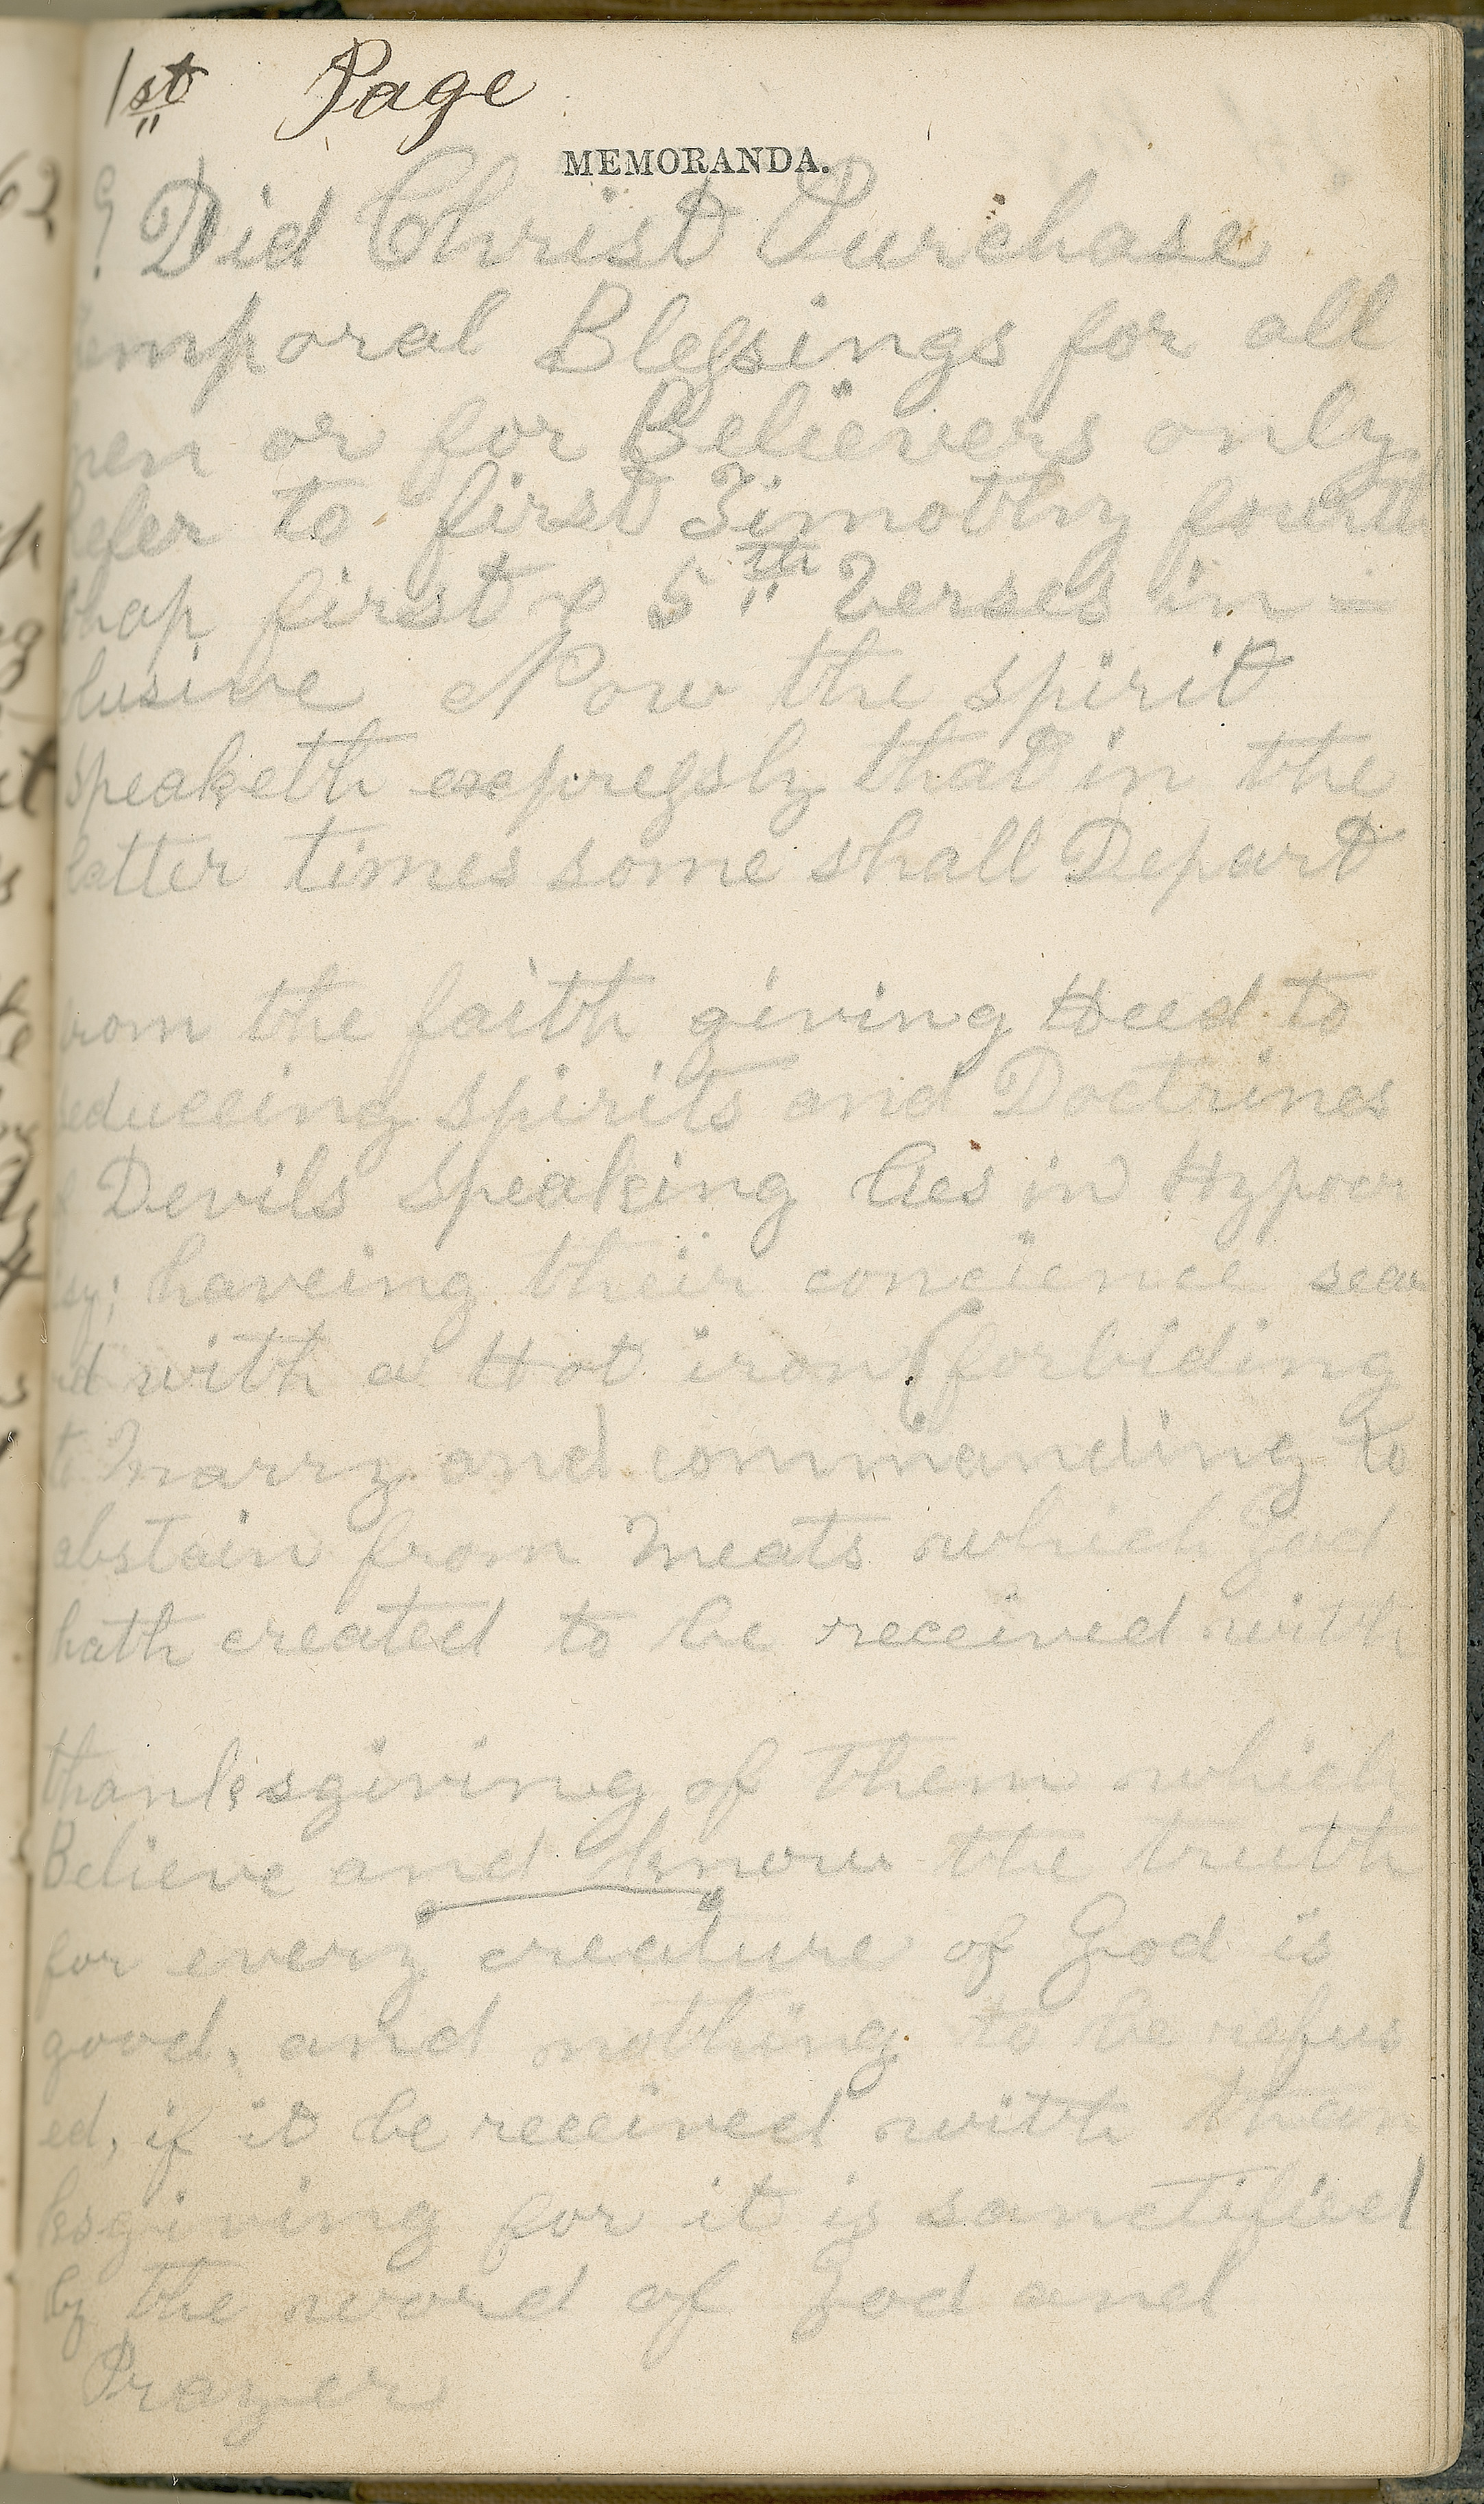 1st Page
MEMORANDA.
? Did Christ Purchase
emporal Blessings for all
men or for Believers only
Refer to first Timothy fourth
Chap first & 5th Verses in-
clusive Now the spirit
speaketh expressly that in the
latter times some shall Depart
from the faith giving Heed to
seduceing spirits and Doctrines
of Devils Speaking lies in Hypocr
isy; haveing their concience sear
ed with a Hot iron (forbiding
to Marry and commanding to
abstain from Meats which God
hath created to be received with
thanksgiving of them which
Believe and know the truth
for every creature of God is
good, and nothing to be refus
ed, if it be received with than
ksgiving for it is sanctified
by the word of God and
Prayer